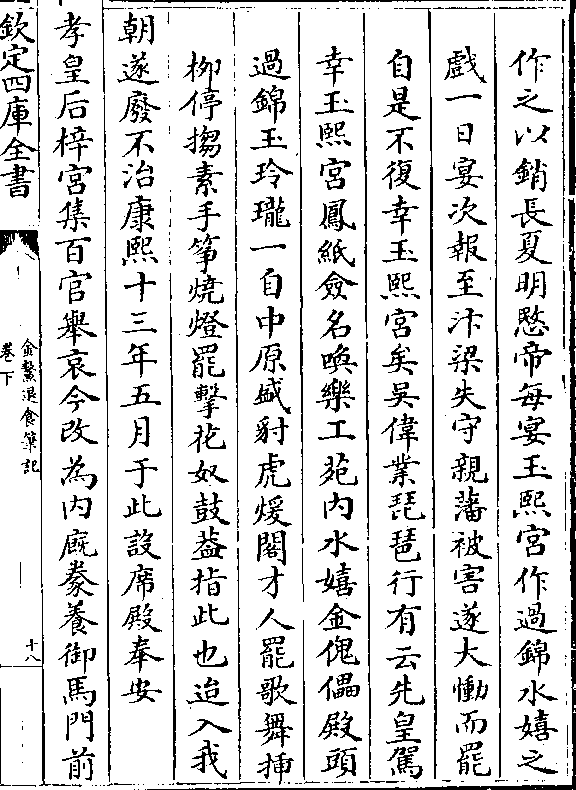 作之以銷長夏明愍帝每宴玉熙宮作過錦水嬉之
戲一日宴次報至汴梁失守親藩被害遂大慟而罷
自是不復幸玉熙宮矣吳偉業琵琶行有云先皇駕
幸玉熙宮鳳紙僉名喚樂工苑内水嬉金傀儡殿頭
過錦玉玲瓏一自中原盛豺虎煖閣才人罷歌舞揷
柳停搊素手箏燒燈罷擊花奴鼓葢指此也迨入我
朝遂廢不治康熙十三年五月于此設席殿奉安
孝皇后梓宮集百官舉哀今改為内廐豢養御馬門前
欽定四庫全書
金鰲退食筆記
卷下
十八